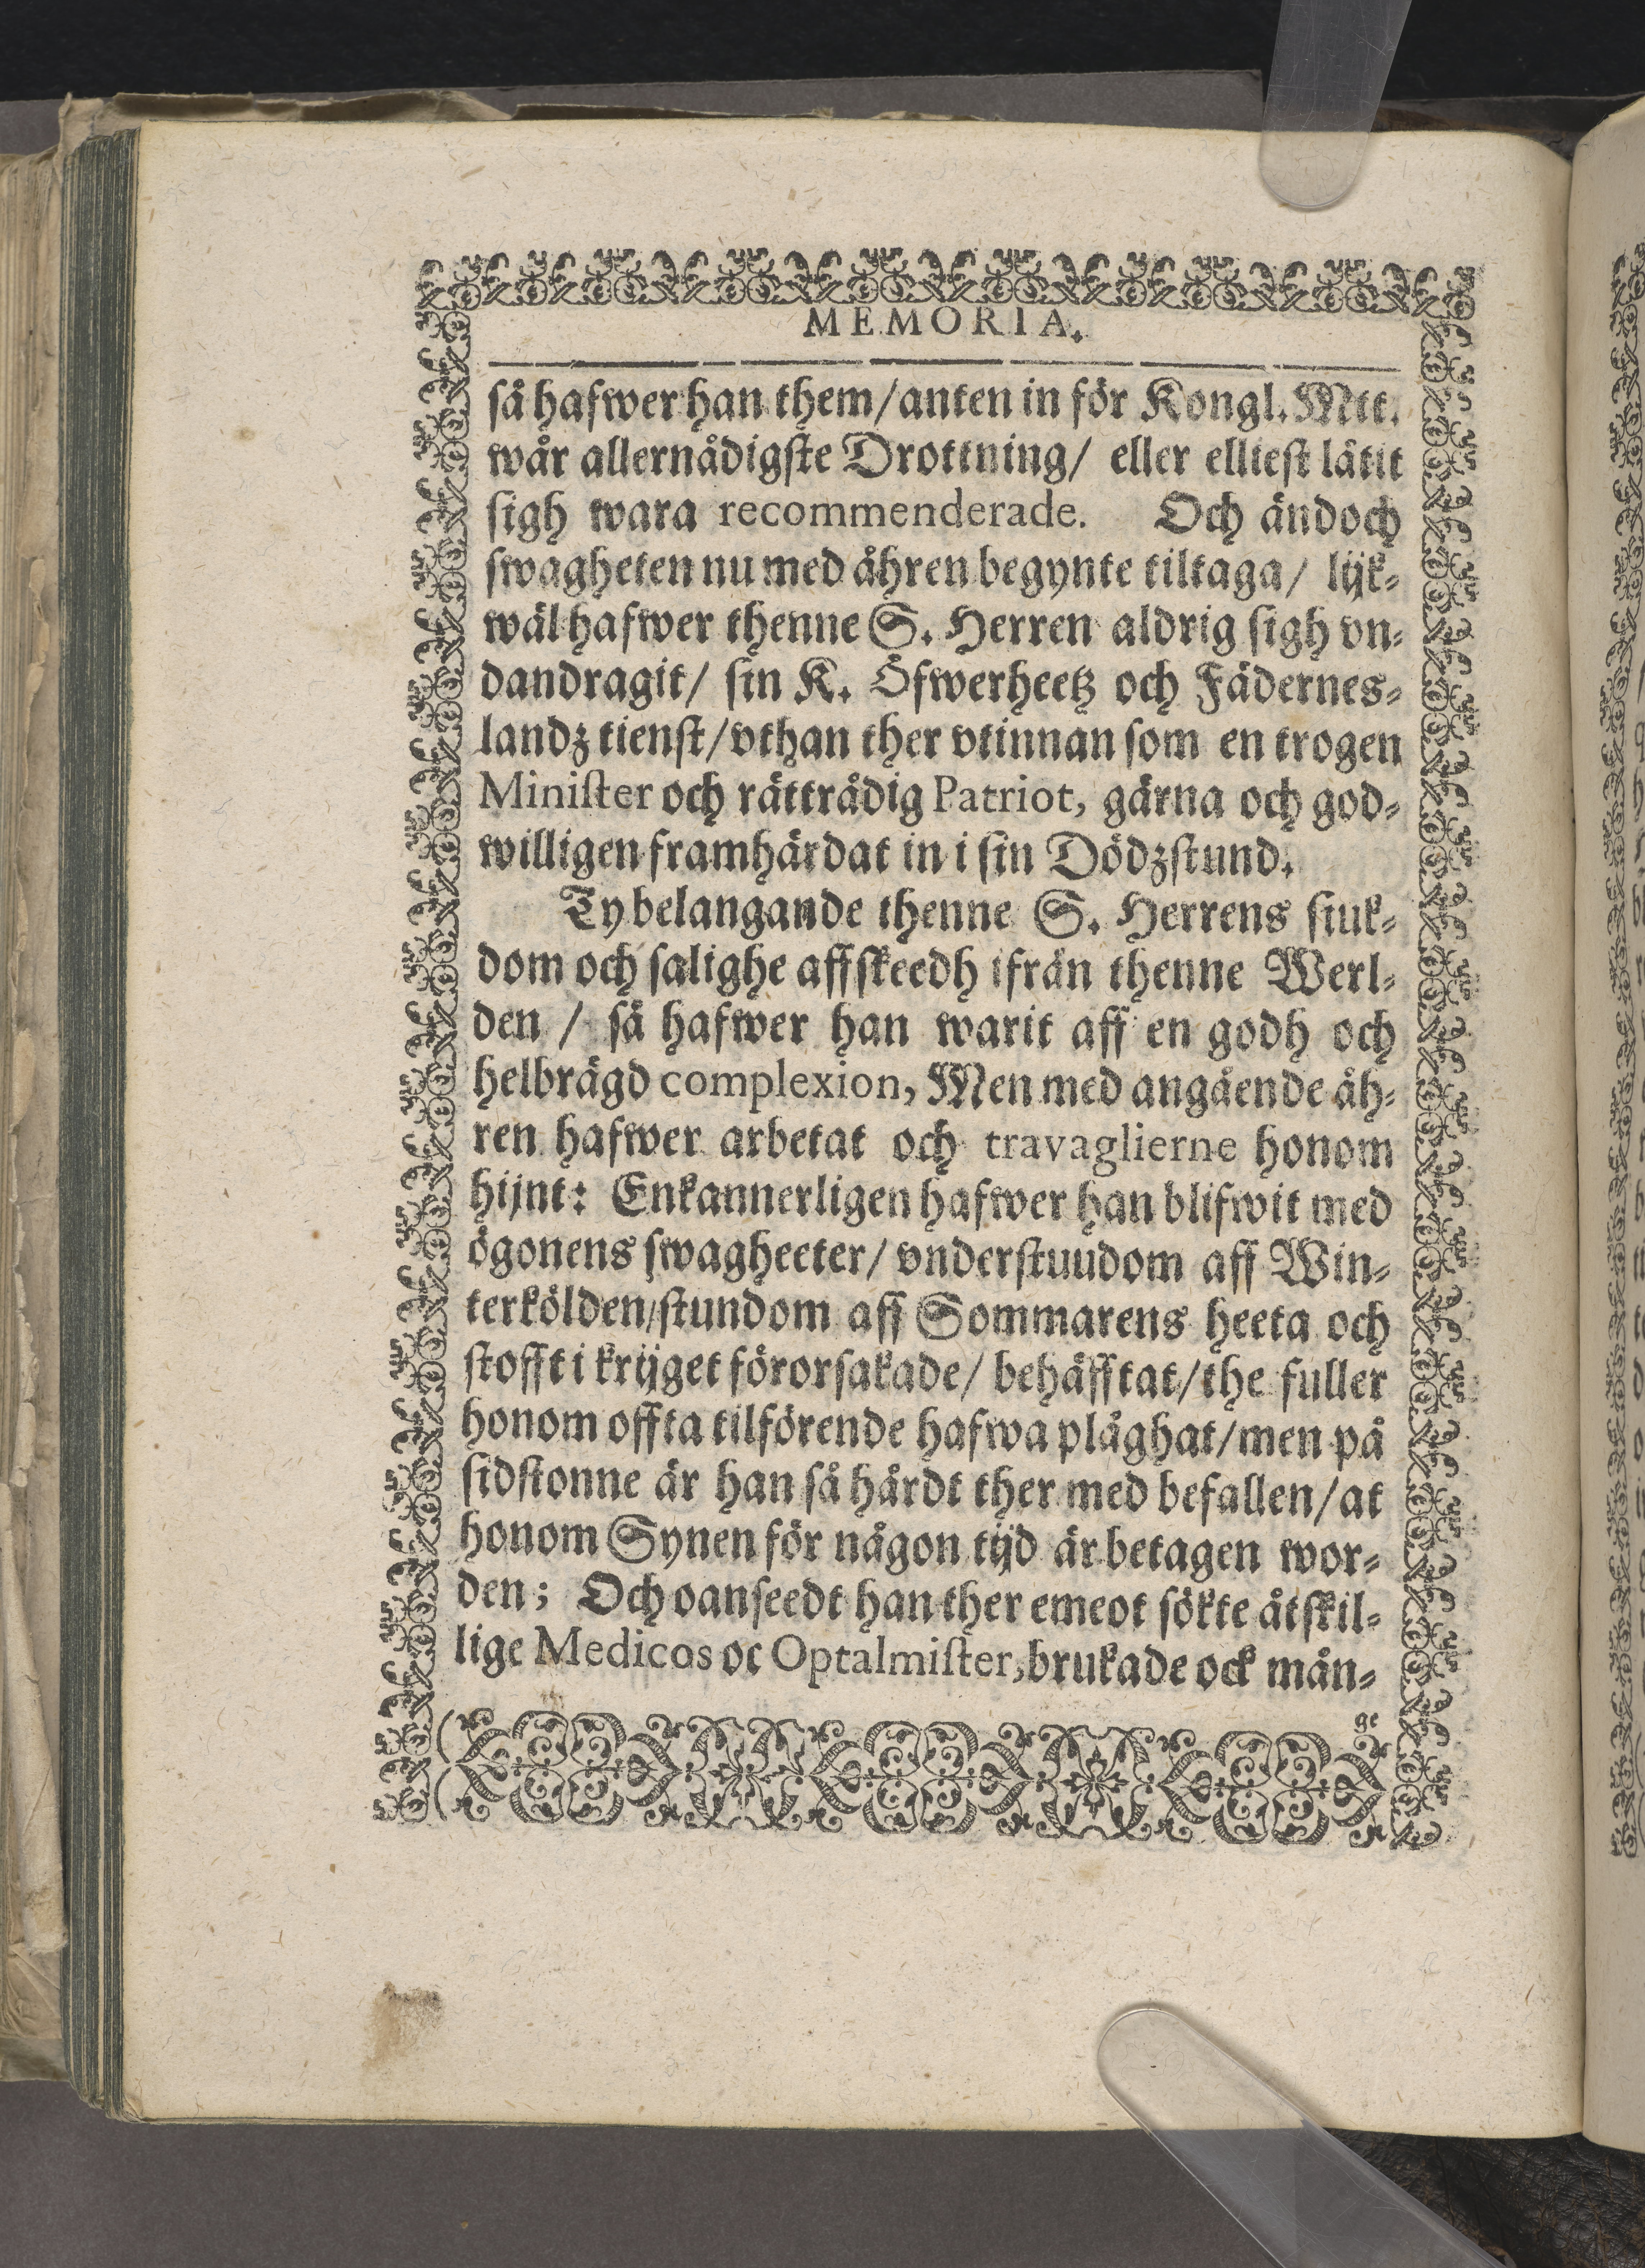 MEMORIA.
så hafwer han them/anten in för Kongl. Mtt.
wår allernådigste Drottning/ eller elliest låtit
sigh wara recommenderade. Och ändoch
swagheten nu med åhren begynte tiltaga/ lijk-
wäl hafwer thenne S. Herren aldrig sigh vn-
dandragit/ sin K. Öfwerheetz och Fädernes-
landz tienst/vthan ther vtinnan som en trogen
Minister och rättrådig Patriot, gärna och god-
willigen framhärdat in i sin Dödzstund.
Ty belangande thenne S. Herrens siuk-
dom och salighe affskeedh ifrån thenne Werl-
den / så hafwer han warit aff en godh och
helbrägd complexion, Men med angående åh-
ren hafwer arbetat och travaglierne honom
hijnt: Enkannerligen hafwer han blifwit med
ögonens swagheeter/ vnderstuudom aff Win-
terkölden/stundom aff Sommarens heeta och
stofft i krijget förorsakade/ behäfftat/the fuller
honom offta tilförende hafwa plåghat/men på
sidstonne är han så hårdt ther med befallen/at
honom Synen för någon tijd är betagen wor-
den; Och oanseedt han ther emeot sökte åtskil-
lige Medicos oc Optalmister, brukade ock mån-
ge